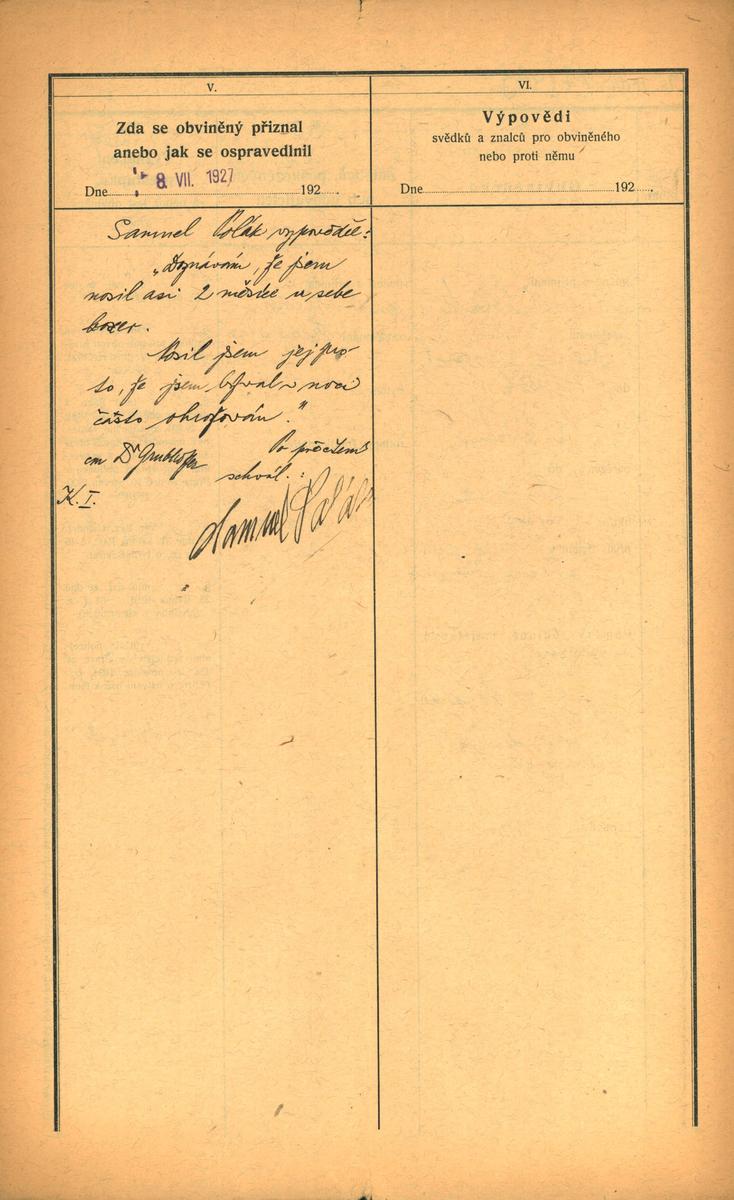 V.
Zda se obviněný přiznal
anebo jak se ospravedlnil
Dne 8. VII. 1927 192
Samuel Polák vypověděl:
„Doznávám, že jsem
nosil asi 2 měsíce u sebe
boxer.
Nosil jsem jej pro-
to, že jsem býval v noci
často ohrožován."
Po přečtení
schvál.:
K. I.
Samuel Polák
VI.
Výpovědi
svědků a znalců pro obviněného
nebo proti němu
Dne 192